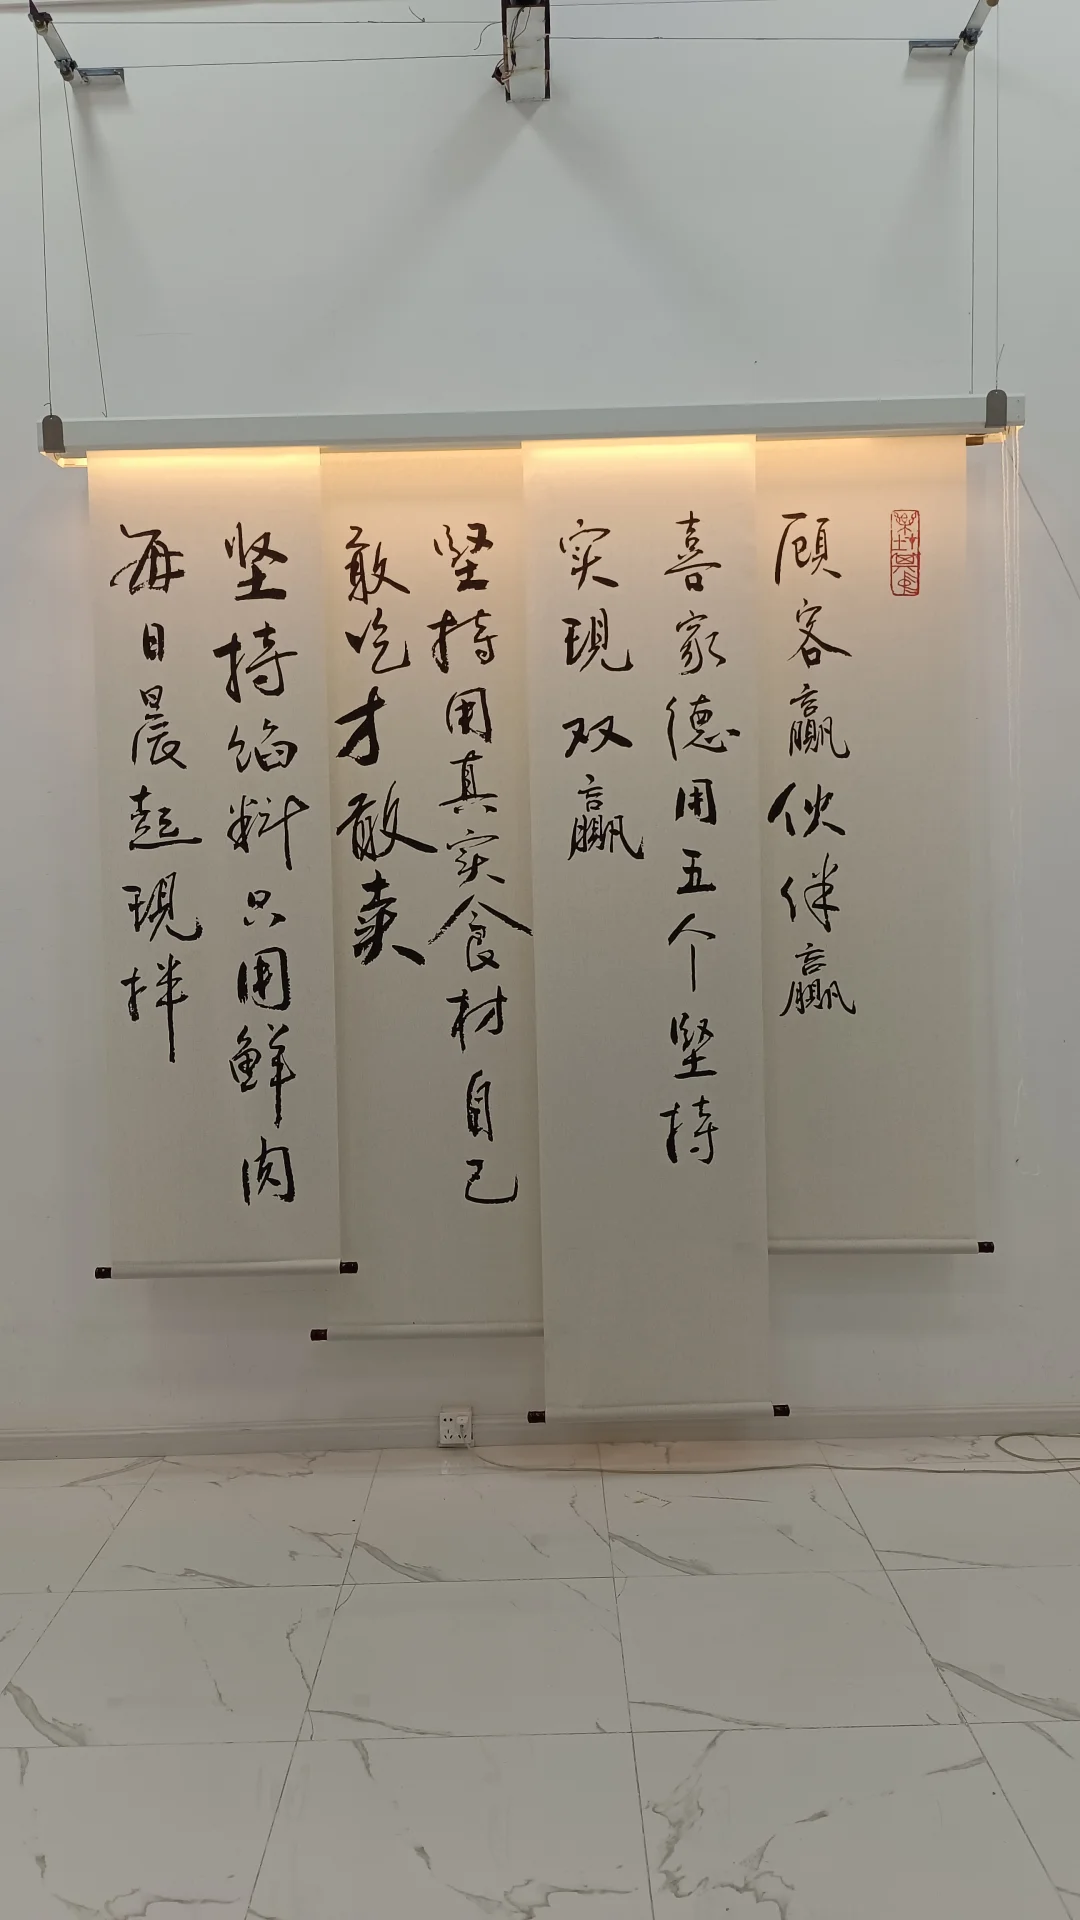 顾客赢伙伴赢
喜家德用五个堅持
实現双赢
堅持用真实食材自己
敢吃才敢卖
坚持馅料只用鲜肉
每日晨起現拌